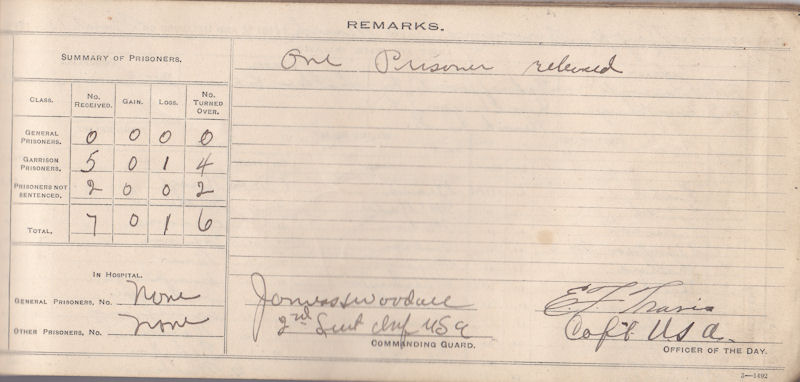 REMARKS.
SUMMARY OF PRISONERS.
CLASS. NO. RECEIVED. GAIN. LOSS. NO. TURNED OVER.
GENERAL PRISONERS. 0 0 0 0
GARRISON PRISONERS. 5 0 1 4
PRISONERS NOT SENTENCED. 2 0 0 2
TOTAL. 7 0 1 6
IN HOSPITAL.
GENERAL PRISONERS, NO. None
OTHER PRISONERS, NO. None
One Prisoner released
James Woodall
2nd Lieut Inf USA
COMMANDING GUARD.
E F Travis
Capt. U S A.
OFFICER OF THE DAY.
3—1492